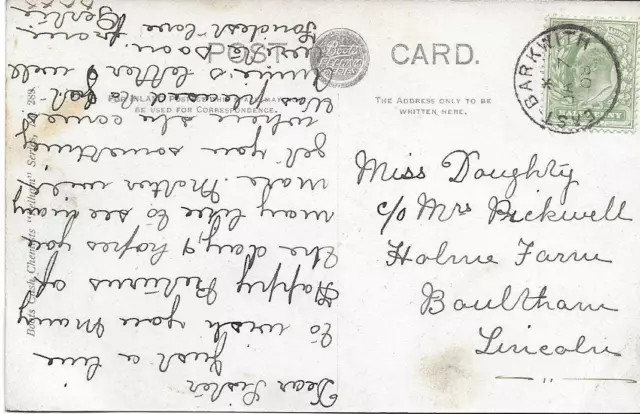 POST CARD.
Boots Cash Chemists "Pelham" Series, No 289.
FOR INLAND POSTAGE THIS MAY
BE USED FOR CORRESPONDENCE.
THE ADDRESS ONLY TO BE
WRITTEN HERE.
EAST BARKWITH
Miss Doughty
c/o Mrs Pickwell
Holme Farm
Boultham
Lincoln
Dear Sister
Just a line
to wish you many
Happy Returns of
the day, I hopes you
may like to see many
more. Mother will
get you something
when she come
was pleased to
Annie's letter & will
write soon.
Fondest love
from
Gertie